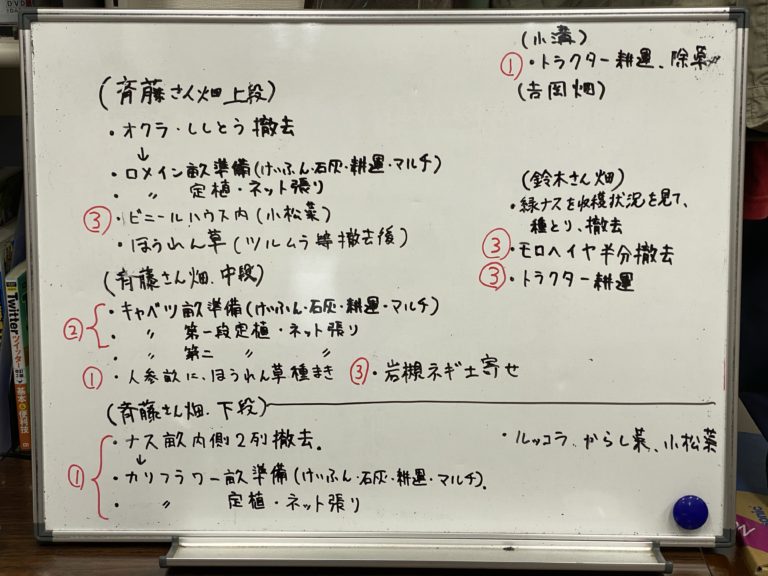 (斉藤さん畑上段)
・オクラ・ししとう撤去
↓
・ロメイン畝準備(けいふん・石灰・耕運・マルチ)
・〃 定植・ネット張り
③・ビニールハウス内(小松菜)
・ほうれん草(ツルムラ等撤去後)
(斉藤さん畑.中段)
②・キャベツ畝準備(けいふん・石灰・耕運・マルチ)
・〃 第一段定植・ネット張り
・〃 第二 〃 〃
①・人参畝に、ほうれん草種まき ③・岩槻ネギ土寄せ
(斉藤さん畑.下段)
①・ナス畝内側2列撤去.
↓
・カリフラワー畝準備(けいふん・石灰・耕運・マルチ).
・〃 定植・ネット張り
(小溝)
①・トラクター耕運、除草
(吉岡畑)
(鈴木さん畑)
・緑ナスを収穫状況を見て、
種とり、撤去
③・モロヘイヤ半分撤去
③・トラクター耕運
・ルッコラ、からし菜、小松菜
Twitter
ツイッター
基本&便利技